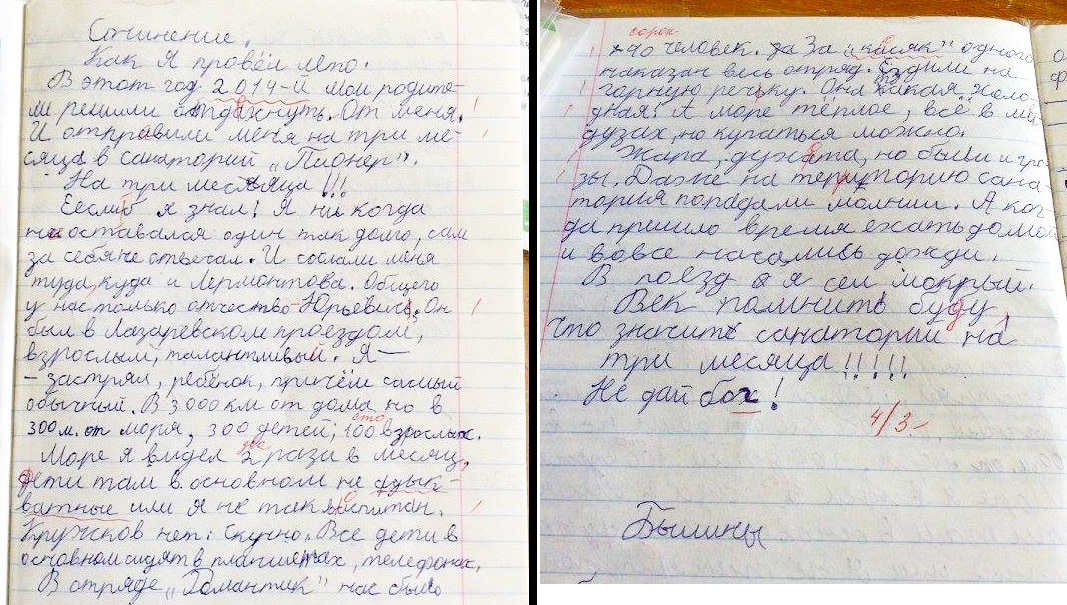 Сочинение.
Как я провёл лето.
В этот год 2 014-й мои родите-
ли решили отдохнуть. От меня.
И отправили меня на три ме-
сяца в санаторий „Пионер".
На три месяца!!!
Если б я знал! Я ни когда
не оставался один так долго, сам
за себя не отвечал. И сослали меня
туда, куда и Лермонтова. Общего
у нас только отчество - Юрьевич. Он
был в Лазаревском проездом,
взрослый, талантливый. Я —
- застрял, ребёнок, причём самый
обычный. В 3 000 км от дома но в
сто
300 м. от моря, 300 детей, 100 взрослых.
два
Море я видел 2 раза в месяц,
дети там в основном не адык-
ватные или я не так воспитан.
Кружков нет: Скучно. Все дети в
основном сидят в планшетах, телефонах.
В отряде „Романтик" нас было
сорок
40 человек. За „касяк" одного
наказан весь отряд. Ездили на
горную речьку. Она такая холо-
дная! А море тёплое, всё в ме-
дузах, но купаться можно.
Жара, духота, но были и гро-
зы. Даже на територию сана-
тория попадали молнии. А ког-
да пришло время ехать домой
и вовсе начались дожди.
В поезд я сел мокрый.
Век помнить буду,
что значит санаторий на
три месяца!!!!!
Не дай бох!
4/3-
Былины